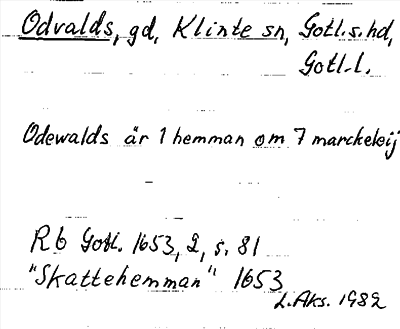 Odvalds, gd, Klinte sn, Gotl.s.hd,
Gotl.l.
Odewalds är 1 hemman om 7 marckeleij
Rb Gotl. 1653, 2, s. 81
"Skattehemman" 1653
L.Aks. 1982